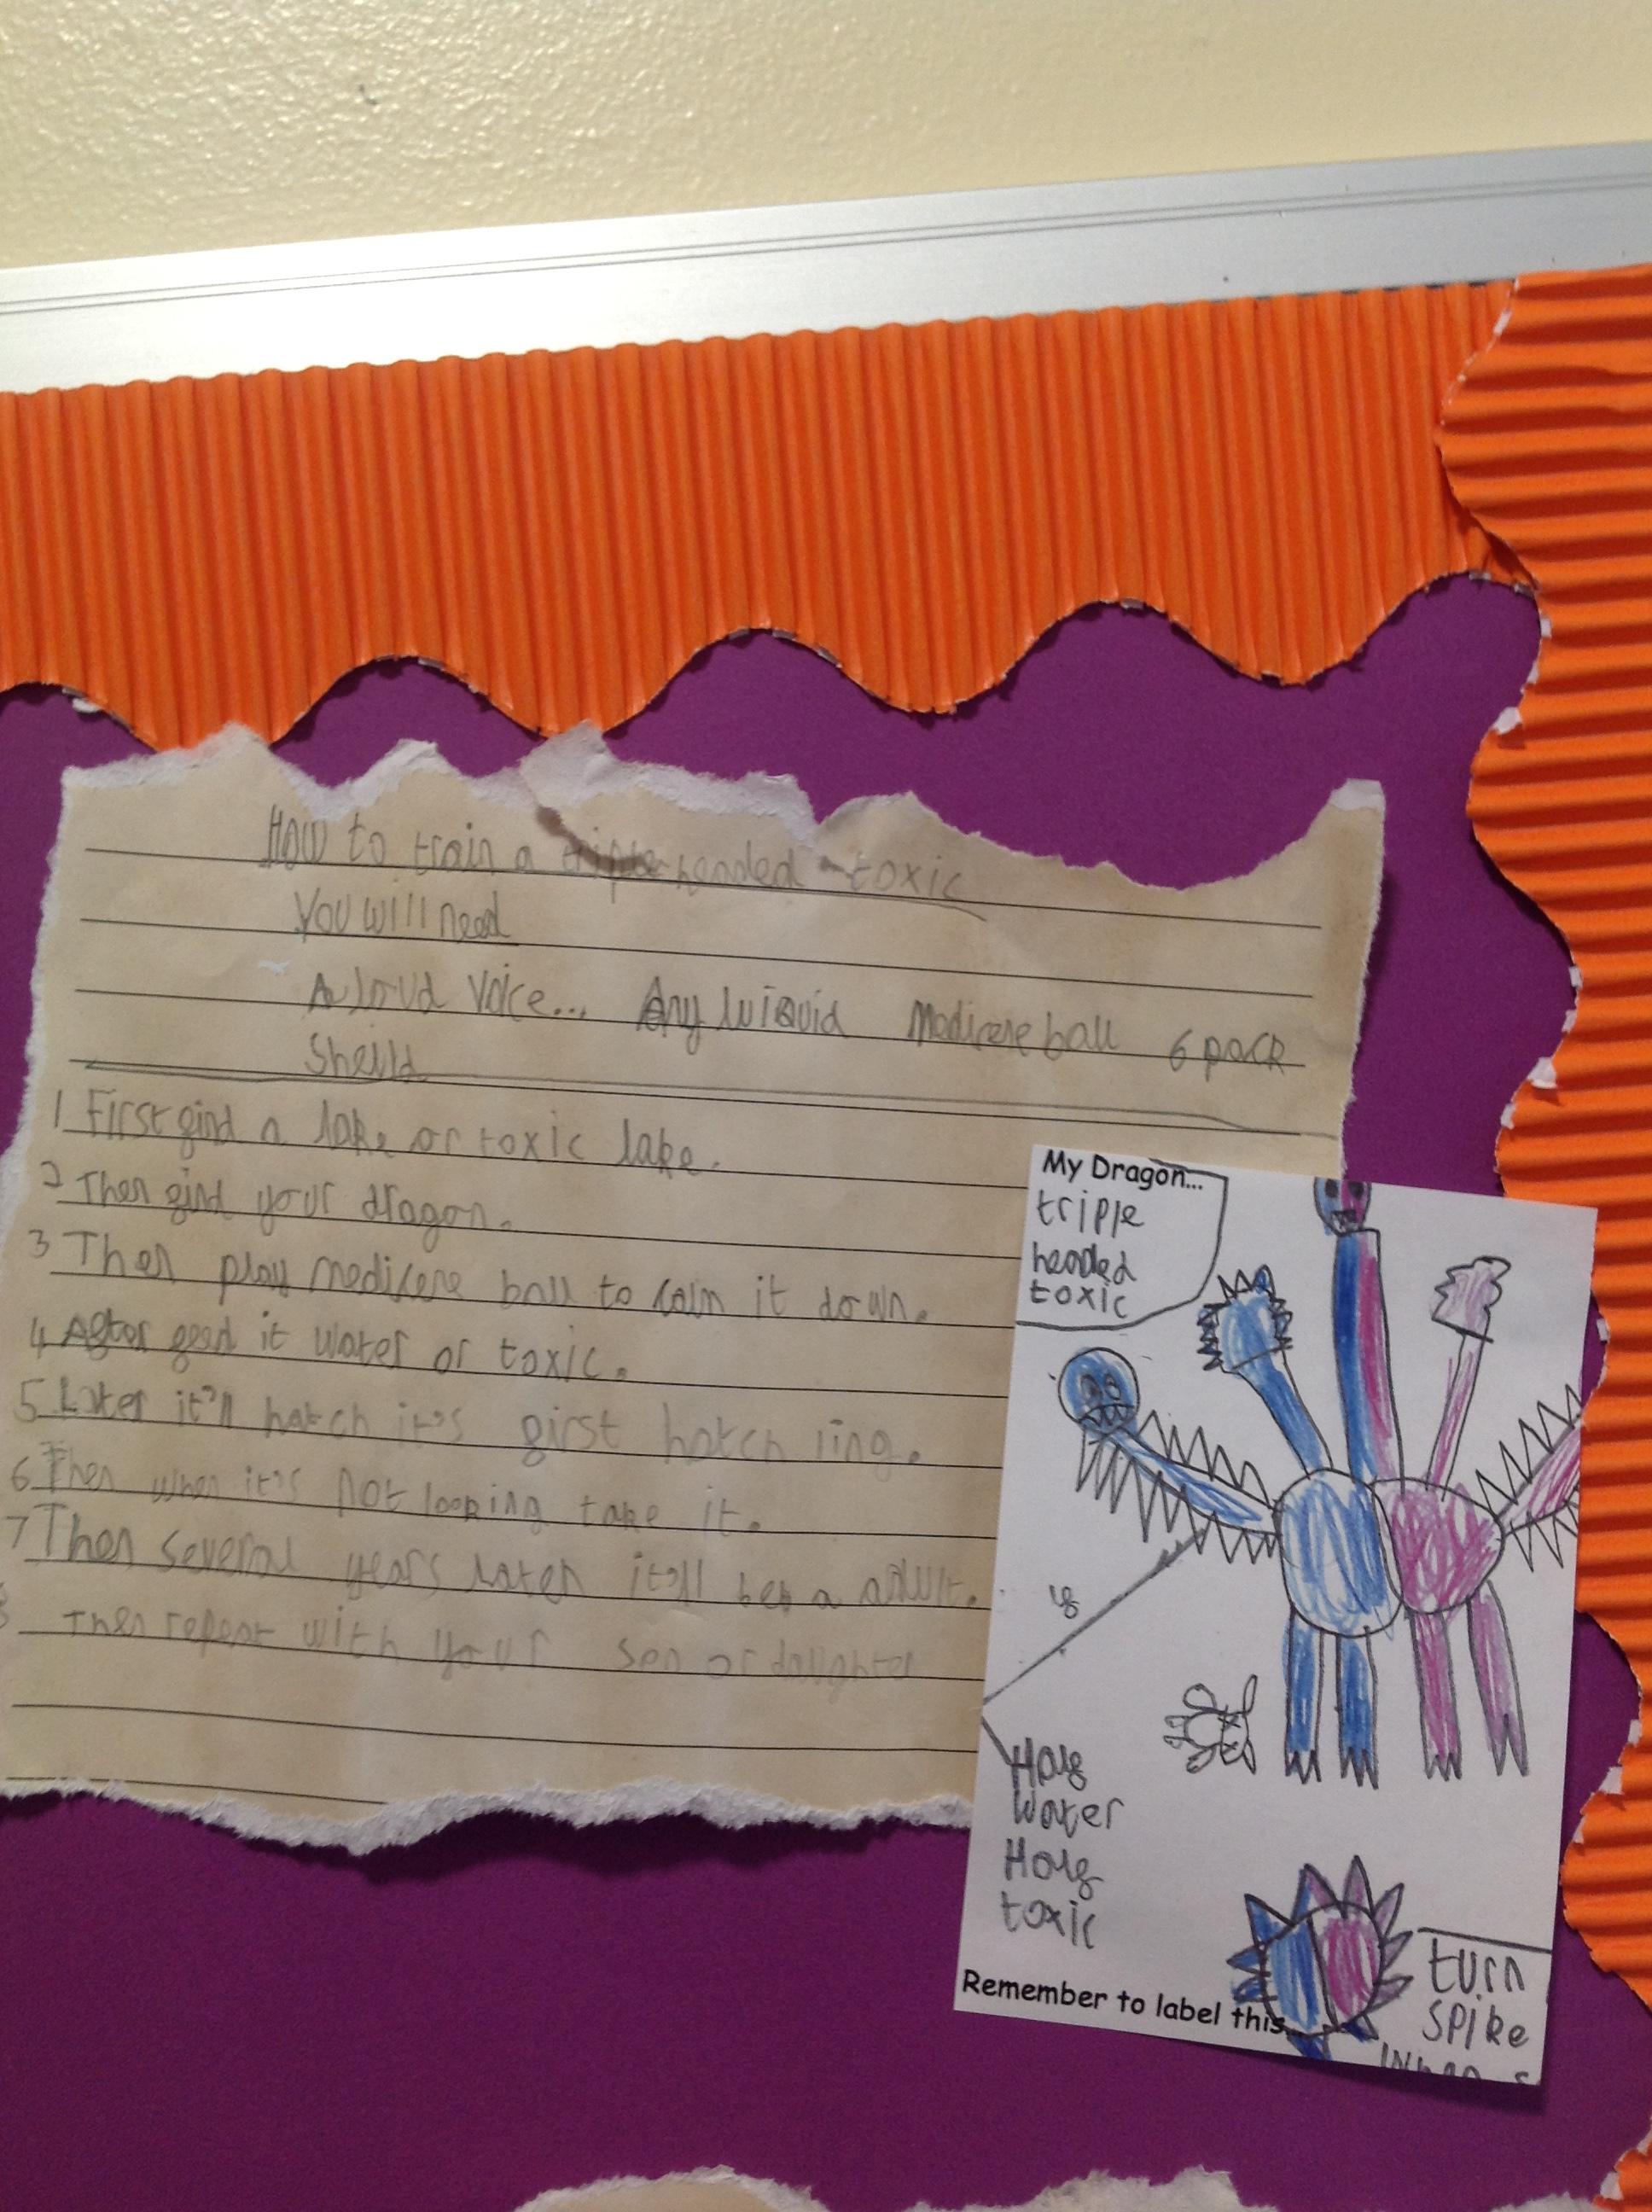 How to train a triple headed - toxic
You will need
A loud voice... Any luiquid Medicene ball 6 pack
Sheild
1 First find a lake or toxic lake.
2 Then find your dragon.
3 Then play medicene ball to calm it down.
4 After feed it water or toxic.
5 Later it'll hatch it's first hatch ling.
6 Then when it's not looking take it.
7 Then several years later it'll be a adult.
8 Then repeat with your son or daughter
My Dragon...
tripple
headed
toxic
Half
water
Half
toxic
Remember to label this...
turn
spike